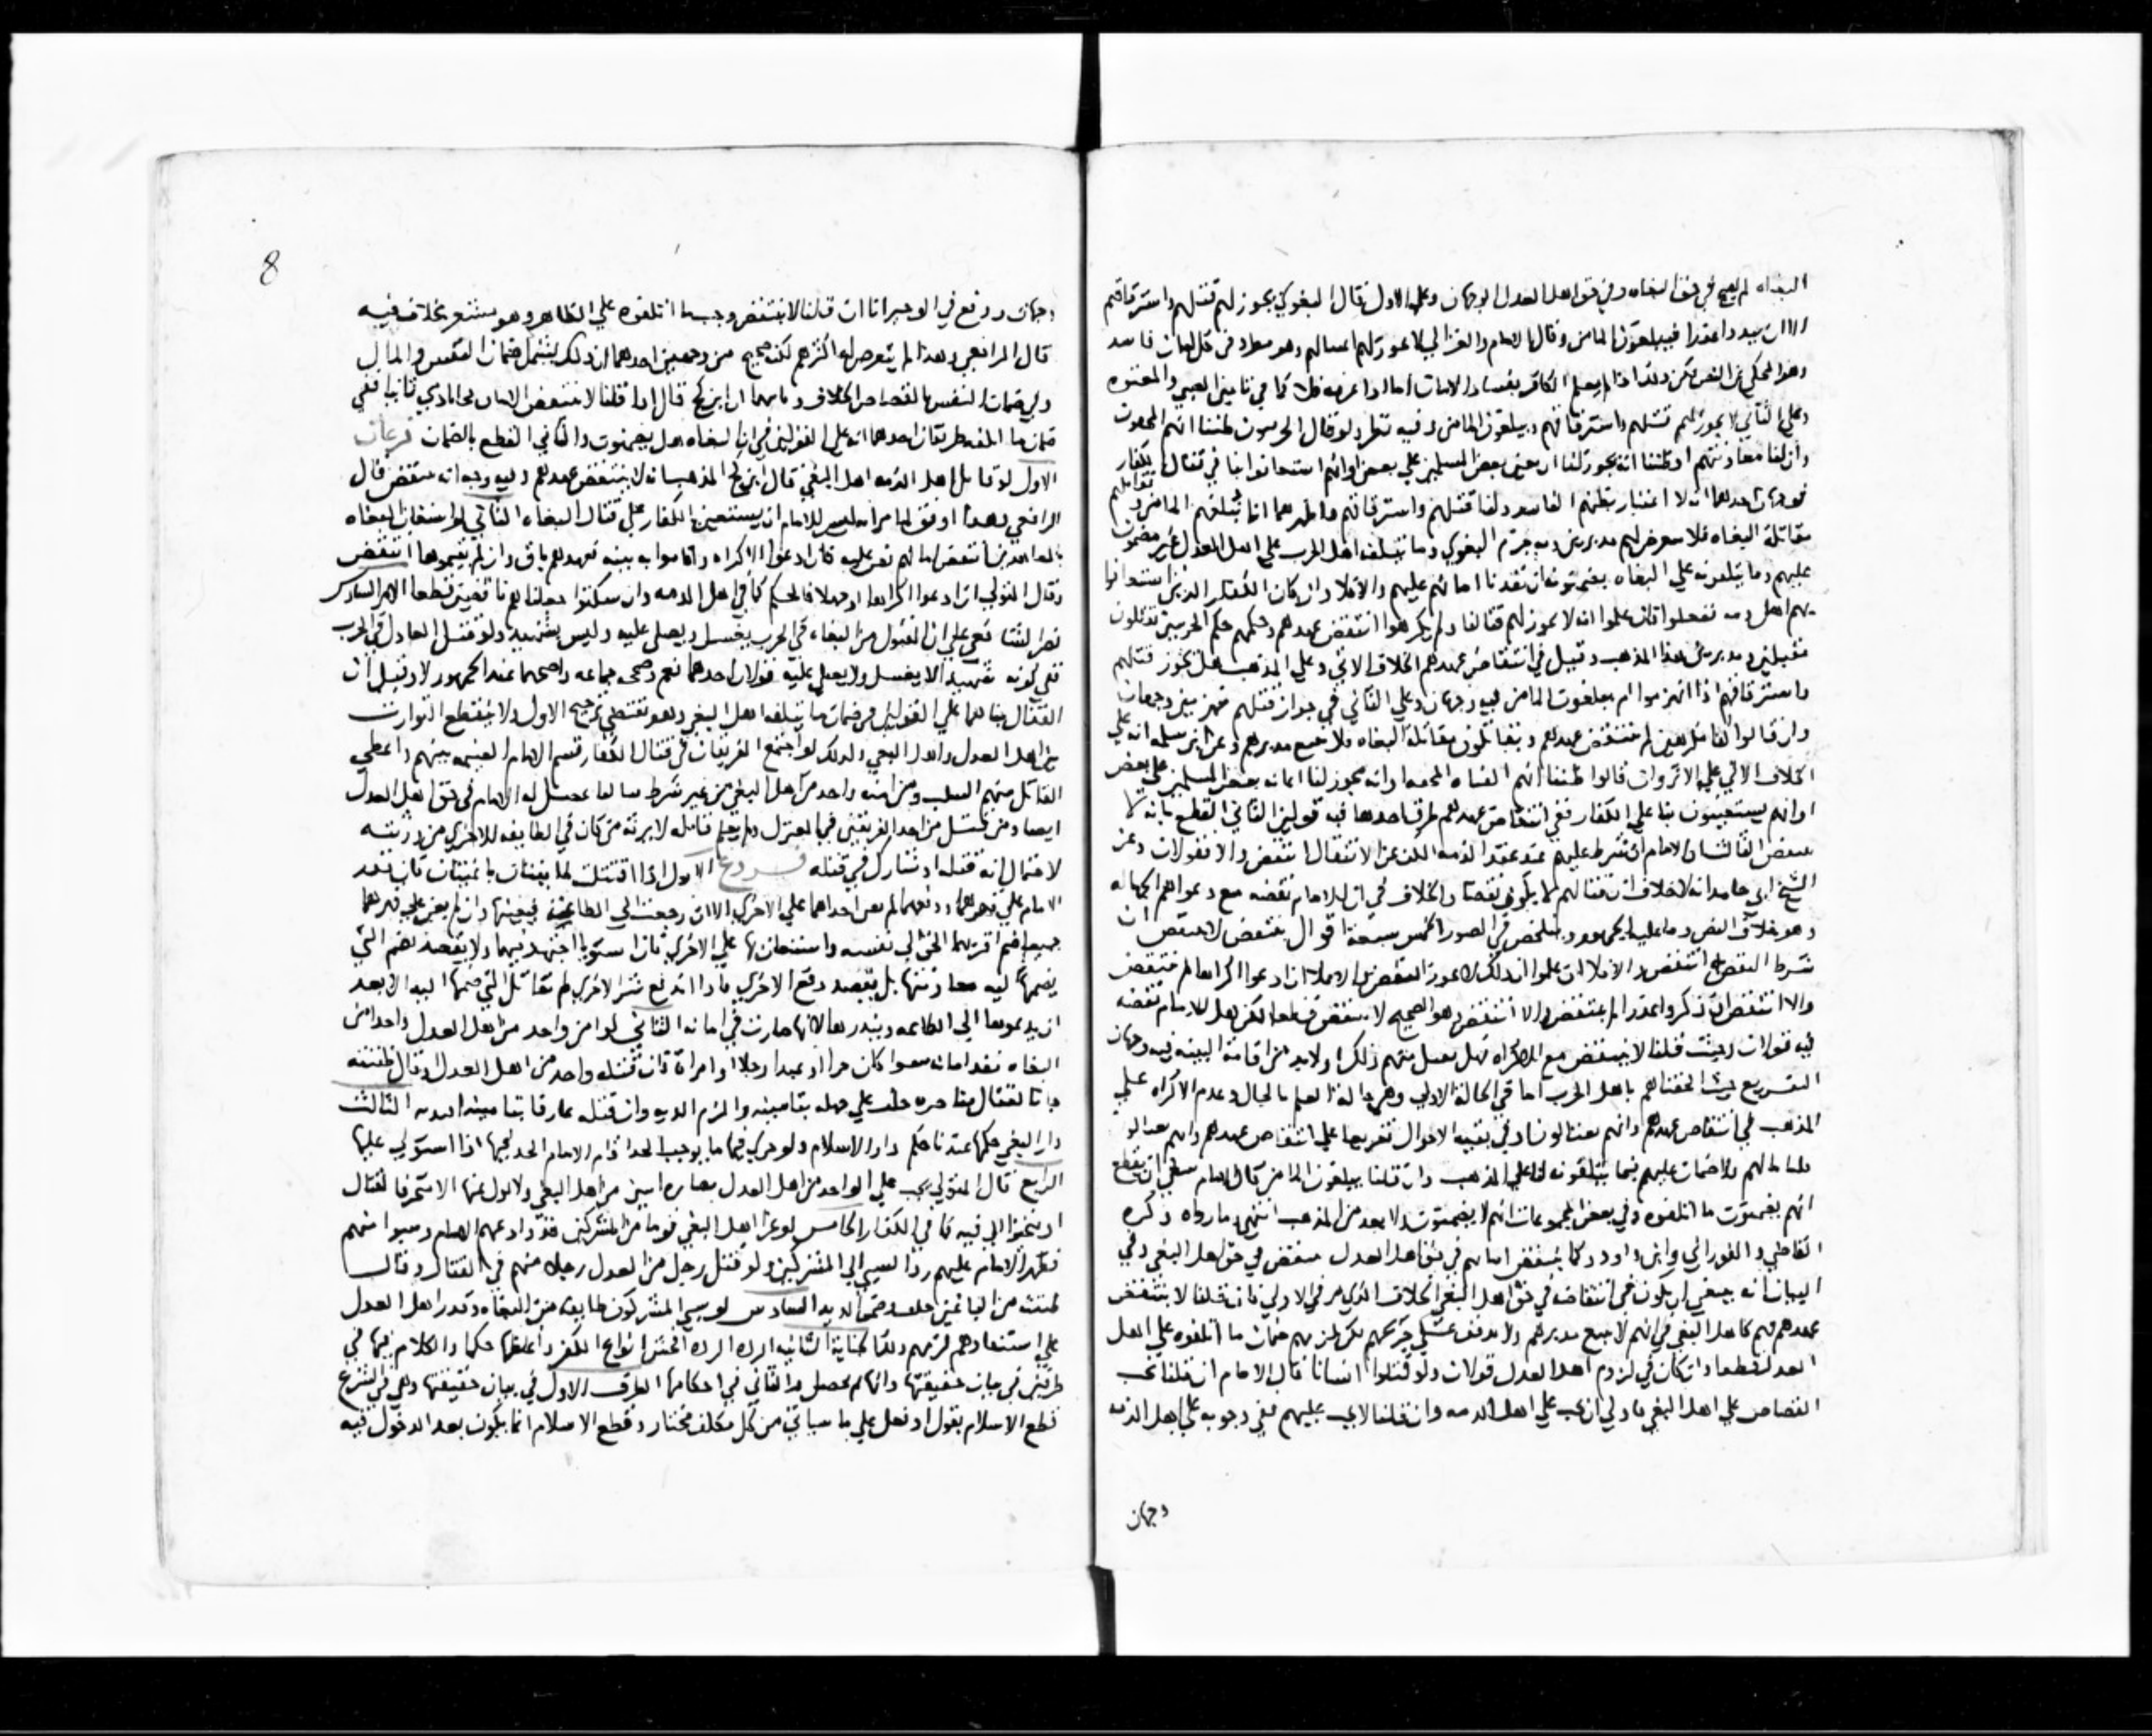 البغاه لم يصح في حق البغاه وفي حق اهل العدل الوجهان وعلي الاول قال البغوي يجوز لهم قتلهم واسترقاقهم
فيبلغون المامن وقال الامام والغزالي لا يجوز لهم اغتيالهم وهو مطرد في كل امان فاسد
وهذا لم يعلم الكافر بفساد الامان اما اذا عرفه فلا كما في تامين الصبي والمعتوه
وعلي الثاني لا يجوز لهم قتلهم واسترقاقهم ويبلغون المامن وفيه نظر ولو قال الحربيون ظننا انهم المحقون
وان لنا معاونتهم او ظننا انه يجوز لنا ان نعين بعض المسلمين علي بعض او انهم استعانوا بنا في قتال الكفار
فوجهان احدهما انه لا اعتبار بظنهم الفاسد ولنا قتلهم واسترقاقهم واظهرهما انا نبلغهم المامن ونقاتلهم
مقاتلة البغاه فلا نتعرض لهم مدبرين وبه جزم البغوي وما يتلفه اهل الحرب علي اهل العدل غير مضمون
عليهم وما يتلفونه علي البغاه يضمنونه ان نفذنا امانهم عليهم والا فلا وان كان الكفار الذين استعانوا
بهم اهل ذمه نفعلوا فان علموا انه لا يجوز لهم قتالنا ولم يكرهوا انتقض عهدهم وحكمهم حكم الحربيين يقتلون
مقبلين ومدبرين هذا المذهب وقيل في انتقاض عهدهم الخلاف الاتي وعلي المذهب هل يجوز قتلهم
واسترقاقهم اذا انهزموا ام يبلغون المامن فيه وجهان وعلي الثاني في جواز قتلهم منهزمين وجهان
وان قالوا كنا مكرهين لم ينتقض عهدهم ويقاتلون مقاتلة البغاه فلا يتبع مدبرهم وعن ابن سلمه انه علي
الخلاف الاتي علي الاثر وان قالوا ظننا انهم الفئه المحقه وانه يجوز لنا اعانه بعض المسلمين علي بعض
او انهم يستعينون بنا علي الكفار ففي انتقاض عهدهم طرق احدها فيه قولين الثاني القطع بانه لا
ينتقض الثالث ان الامام ان شرط عليهم عند عقد الذمه الكف عن الاقتتال انتقض والا فقولان وعن
الشيخ ابي حامد انه لا خلاف ان قتالهم لا يكون نقضا والخلاف في ان للامام نقضه مع دعواهم الجهاله
وهو خلاف النص وما عليه الجمهور ويتلخص في الصور الخمس سبعة اقوال ينتقض لا ينتقض ان
شرط النقض انتقض والا فلا ان علموا ان ذلك لا يجوز انتقض والا فلا ان ادعوا اكراها لم ينتقض
والا انتقض ان ذكروا عذرا لم ينتقض والا انتقض وهو الصحيح لا ينتقض قطعا لكن هل للامام نقضه
فيه قولان وحيث قلنا لا ينتقض مع الاكراه فهل يقبل منهم ذلك او لابد من اقامة البينه فيه وجهان
التفريع حيث الحقناهم باهل الحرب اما في الحالة الاولي وهي حالة العلم بالحال وعدم الاكراه علي
المذهب في انتقاض عهدهم وانهم يقتلون او في بقيه الاحوال تفريعا علي انتقاض عهدهم وانهم
ولا ضمان عليهم فيما يتلفونه علي المذهب وان قلنا يبلغون المامن قال الامام ينبغي ان يقطع
انهم يضمنون ما اتلفوه وفي بعض المجموعات انهم لا يضمنون ولا يعد من المذهب انتهي وما رواه ذكره
القاضي والفوراني وابن داوود وكما ينتقض امانهم في حق اهل العدل ينتقض في حق اهل البغي وفي
البيان انه ينبغي ان يكون في انتقاضه في حق اهل البغي الخلاف الذي مر في الاولي فان قلنا لا ينتقض
عهدهم فهم كاهل البغي في انهم لا يتبع مدبرهم ولا يذفف علي جريحهم لكن يلزمهم ضمان ما اتلفوه علي اهل
العدل قطعا وان كان في لزوم اهل العدل قولان ولو قتلوا انسانا قال الامام ان قلنا يجب
القصاص علي اهل البغي فاولي ان يجب علي اهل الذمه وان قلنا لا يجب عليهم ففي وجوبه علي اهل الذمه
وجهان
8
وجهان ووقع في الوجيز انا ان قلنا لا ينتقض وجب ما اتلفوه علي الظاهر وهو مشعر بخلاف فيه
قال الرافعي وهذا لم يتعرض له اكثرهم لكنه صحيح من وجهين احدهما ان ذلك يشمل ضمان النفس والمال
وفي ضمان النفس بالقصاص الخلاف وثانيهما ان ابن كج قال اذا قلنا لا ينتقض الامان ففي
ضمان ما اتلفوه طريقان احدهما انه علي القولين في ان البغاه هل يضمنون والثاني القطع بالضمان فرعان
الاول لو قاتل اهل الذمه اهل البغي قال ابن كج المذهب انه لا ينتقض عهدهم وفيه وجه انه ينتقض قال
الرافعي وهذا اوفق لما مر انه ليس للامام ان يستعين بالكفار علي قتال البغاه الثاني لو استعان البغاه
بالمعاهدين انتقض امانهم نص عليه فان ادعوا الاكراه واقاموا به بينه فعهدهم باق وان لم يقيموها انتقض
وقال المتولي ان ادعوا اكراها او جهلا فالحكم كما في اهل الذمه وان سكتوا جعلناهم ناقضين قطعا الامر السادس
نص الشافعي علي ان المقتول من البغاه في الحرب يغسل ويصلي عليه وليس بشهيد ولو قتل العادل في الحرب
ففي كونه شهيدا لا يغسل ولا يصلي عليه قولان احدهما نعم وصححه جماعه واصحهما عند الجمهور لا وقيل ان
القفال بناهما علي القولين في ضمان ما يتلفه اهل البغي وهو يقتضي ترجيح الاول ولا ينقطع التوارث
بين اهل العدل واهل البغي وكذلك لو اجتمع الفريقان في قتال الكفار قسم الامام الغنيمه بينهم واعطي
القاتل منهم السلب ومن امنه واحد من اهل البغي من غير شرط
ايضا ومن قتل من احد الفريقين فيما المعترك ولم يعلم قاتله لا يرثه من كان في الطايفه الاخري من ورثته
لاحتمال انه قتله او شارك في قتله فروع الاول اذا اقتتلت طايفتان باغيتان فان قدر
الامام علي قهرهما ودفعهما لم يعن احداهما علي الاخري الا ان رجعت الي الطاعه فيعينها وان لم يقدر علي قهرهما
جميعا ضم اقربهما الي الحق الي نفسه واستعان بها علي الاخري فان استويا اجتهد فيهما ولا يقصد بضم التي
يضمها اليه معاونتها بل يقصد دفع الاخري فاذا اندفع شر الاخري لم يقاتل التي ضمها اليه الا بعد
ان يدعوها الي الطاعه وينذرها لانها صارت في امانه الثاني لو امن واحد من اهل العدل واحدا من
البغاه نفذ امانه سوا كان حرا او عبدا رجلا او امراة فان قتله واحد من اهل العدل وقال ظننته
جا للقتال بغا حره حلف علي جهله بتامينه والزم الديه وان قتله عارفا بتامينه الثالث
دار البغي حكمها عندنا حكم دار الاسلام ولو جري فيها ما يوجب الحد اقام الامام الحد فيها اذا استولي عليها
الرابع قال المتولي يجب علي الواحد من اهل العدل مصابرة اثنين من اهل البغي ولا يولي عنهما الا متحرفا لقتال
او متحيزا الي فيه كما في الكفار الخامس لو غزا اهل البغي قوما من المشركين قد وادعهم الامام وسبوا منهم
فظهر الامام عليهم رد السبي الي المشركين ولو قتل رجل من اهل العدل رجلا منهم في القتال وقال
ظننته من الباغين حلف وضمن الديه السادس لو سبي المشركون طايفه من البغاه وقدر اهل العدل
علي استنقاذهم لزمهم ذلك الجناية الثانيه الرده الرده افحش انواع الكفر واغلظها حكما والكلام فيها في
طرفين في بيان حقيقتها واحكامها الطرف الاول في بيان حقيقتها وهي في الشرع
قطع الاسلام بقول او فعل علي ما سياتي من كل مكلف مختار وقطع الاسلام انما يكون بعد الدخول فيه